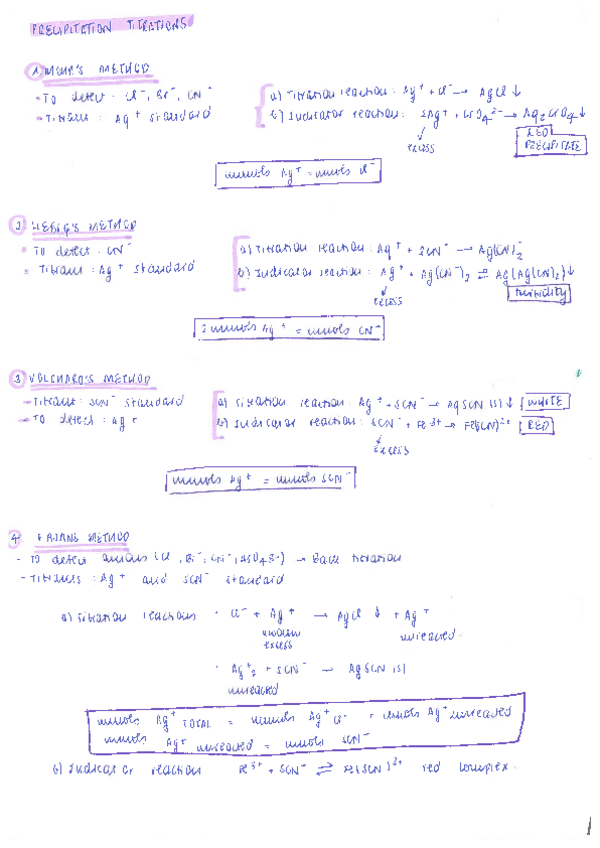 PRECIPITATION TITRATIONS
1. MOHR'S METHOD
- To detect: Cl⁻, Br⁻, CN⁻
- Titrant: Ag⁺ standard
a) Titration reaction: Ag⁺ + Cl⁻ → AgCl ↓
b) Indicator reaction: 2Ag⁺ + CrO4²⁻ → Ag2CrO4 ↓
excess
RED PRECIPITATE
mmols Ag⁺ = mmols Cl⁻
2 LIEBIG'S METHOD
- To detect: CN⁻
- Titrant: Ag⁺ standard
a) Titration reaction: Ag⁺ + 2CN⁻ → Ag(CN)2⁻
b) Indicator reaction: Ag⁺ + Ag(CN⁻)2 ⇌ Ag(Ag(CN)2) ↓
excess
turbidity
2 mmols Ag⁺ = mmols CN⁻
3 VOLHARD'S METHOD
- Titrant: SCN⁻ standard
- To detect: Ag⁺
a) Titration reaction: Ag⁺ + SCN⁻ → AgSCN (s) ↓ WHITE
b) Indicator reaction: SCN⁻ + Fe³⁺ → Fe(SCN)²⁺ RED
excess
mmols Ag⁺ = mmols SCN⁻
4 FAJANS METHOD
- To detect anions (Cl⁻, Br⁻, CN⁻, → Back titration
- Titrants: Ag⁺ and SCN⁻ standard
a) Titration reactions · Cl⁻ + Ag⁺ → AgCl ↓ + Ag⁺
known excess
unreacted
· Ag⁺2 + SCN⁻ → AgSCN (s)
unreacted
mmols Ag⁺ TOTAL = mmols Ag⁺ Cl⁻ = mmols Ag⁺ unreacted
mmols Ag⁺ unreacted = mmols SCN⁻
b) Indicator reaction Fe³⁺ + SCN⁻ ⇌ Fe(SCN)²⁺ red complex.